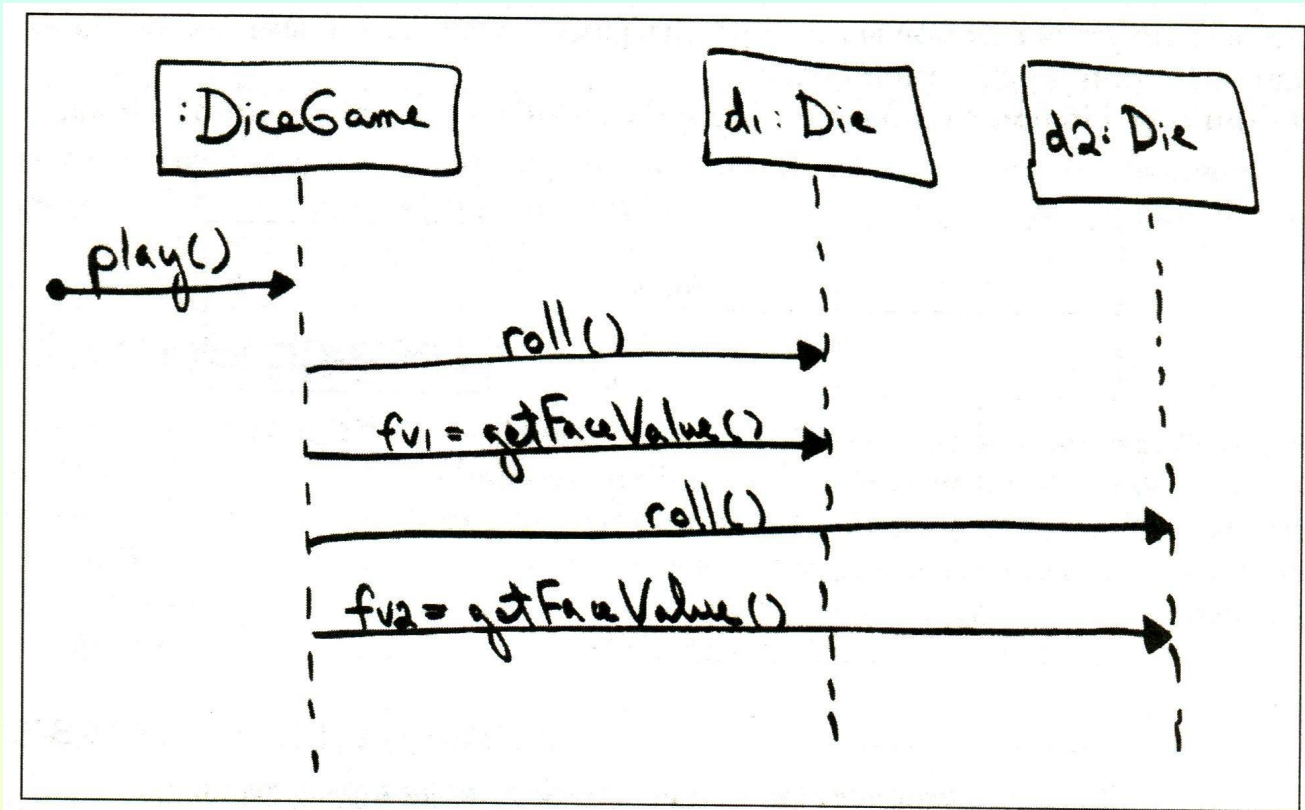 :DiceGame
d1: Die
d2: Die
play()
roll()
fv1 = getFaceValue()
roll()
fv2 = getFaceValue()